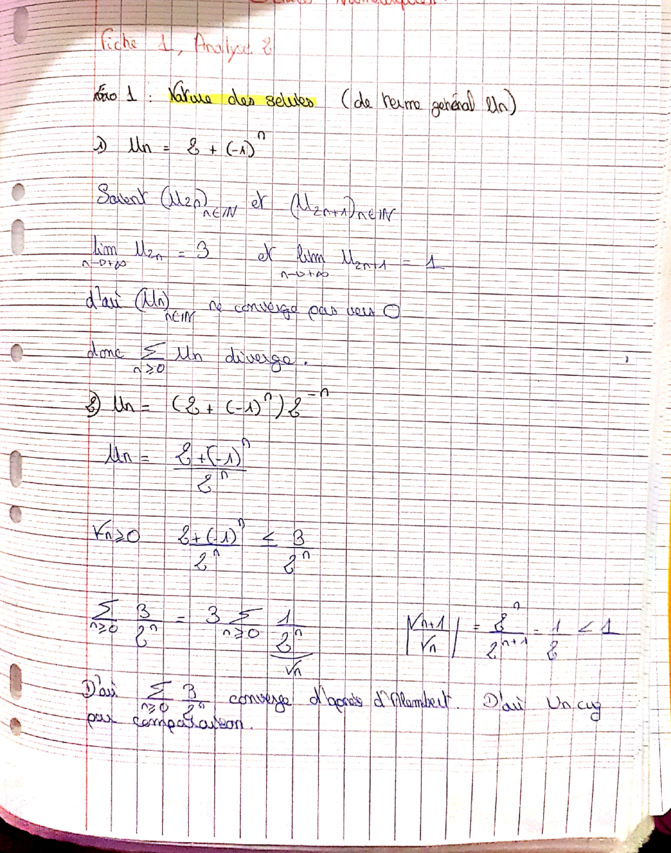 Fiche 1, Analyse 2
Exo 1 : Nature des séries (de terme général Un)
1) Un = 2 + (-1)^n
Soient (U2n)n∈IN et (U2n+1)n∈IN
lim n→+∞ U2n = 3 et lim n→+∞ U2n+1 = 1
d'où (Un)n∈IN ne converge pas vers 0
donc Σ n≥0 Un diverge.
2) Un = (2 + (-1)^n) 2^-n
Un = (2 + (-1)^n) / 2^n
∀n≥0 (2 + (-1)^n) / 2^n ≤ 3 / 2^n
Σ n≥0 3 / 2^n = 3 Σ n≥0 1 / 2^n |Vn+1 / Vn| = 2^n / 2^n+1 = 1 / 2 < 1
Vn
D'où Σ n≥0 3 / 2^n converge d'après d'Alembert. D'où Un cvg
par comparaison.